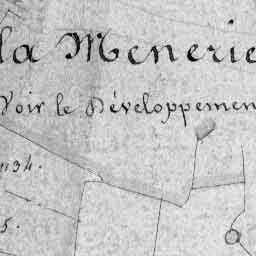 la Menerie
Voir le Développemen
1134.
5.